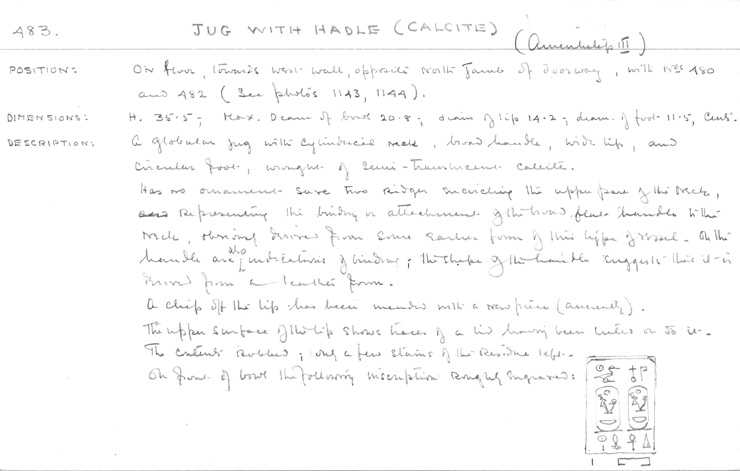 483. JUG WITH HADLE (CALCITE)
(Amenhetep III)
POSITION: On floor, towards west wall, opposite north jamb of doorway, with Nos 480
and 482 (See photos 1143, 1144).
DIMENSIONS: H. 35.5; Max. Diam of bowl 20.8; diam of lip 14.2; diam. of foot 11.5, Cent.
DESCRIPTION: A globular jug with cylindrical neck, broad handle, wide lip, and
circular foot, wrought of semi-translucent calcite.
Has no ornament save two ridges encircling the upper part of the neck,
representing the binding or attachment of the broad flat handle to the
neck, obviously derived from some earlier form of this type of vessel. On the
handle are also indications of binding; the shape of the handle suggests that it is
derived from a leather form.
A chip off the lip has been mended with a new piece (anciently).
The upper surface of the lip shows traces of a lid having been luted on to it.
The contents robbed; only a few stains of the residue left.
On front of bowl the following inscription roughly engraved: